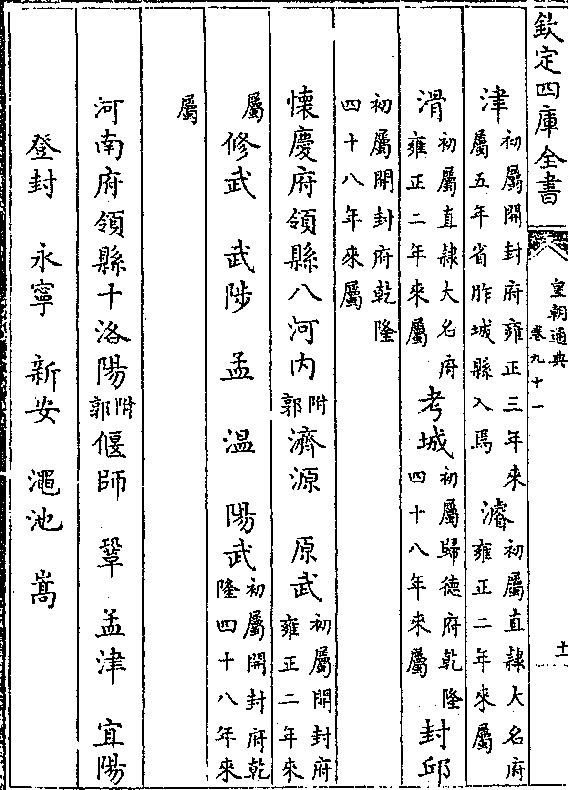 欽定四庫全書
皇朝通典
卷九十一
十一
津初屬開封府雍正三年來屬五年省胙城縣入焉 濬初屬直隸大名府雍正二年來屬
滑初屬直隸大名府雍正二年來屬 考城初屬歸德府乾隆四十八年來屬 封邱
初屬開封府乾隆四十八年來屬
懷慶府領縣八河内附郭濟源 原武初屬開封府雍正二年來
屬修武 武陟 孟 温 陽武初屬開封府乾隆四十八年來
屬
河南府領縣十洛陽附郭偃師 鞏 孟津 宜陽
登封 永寧 新安 澠池 嵩